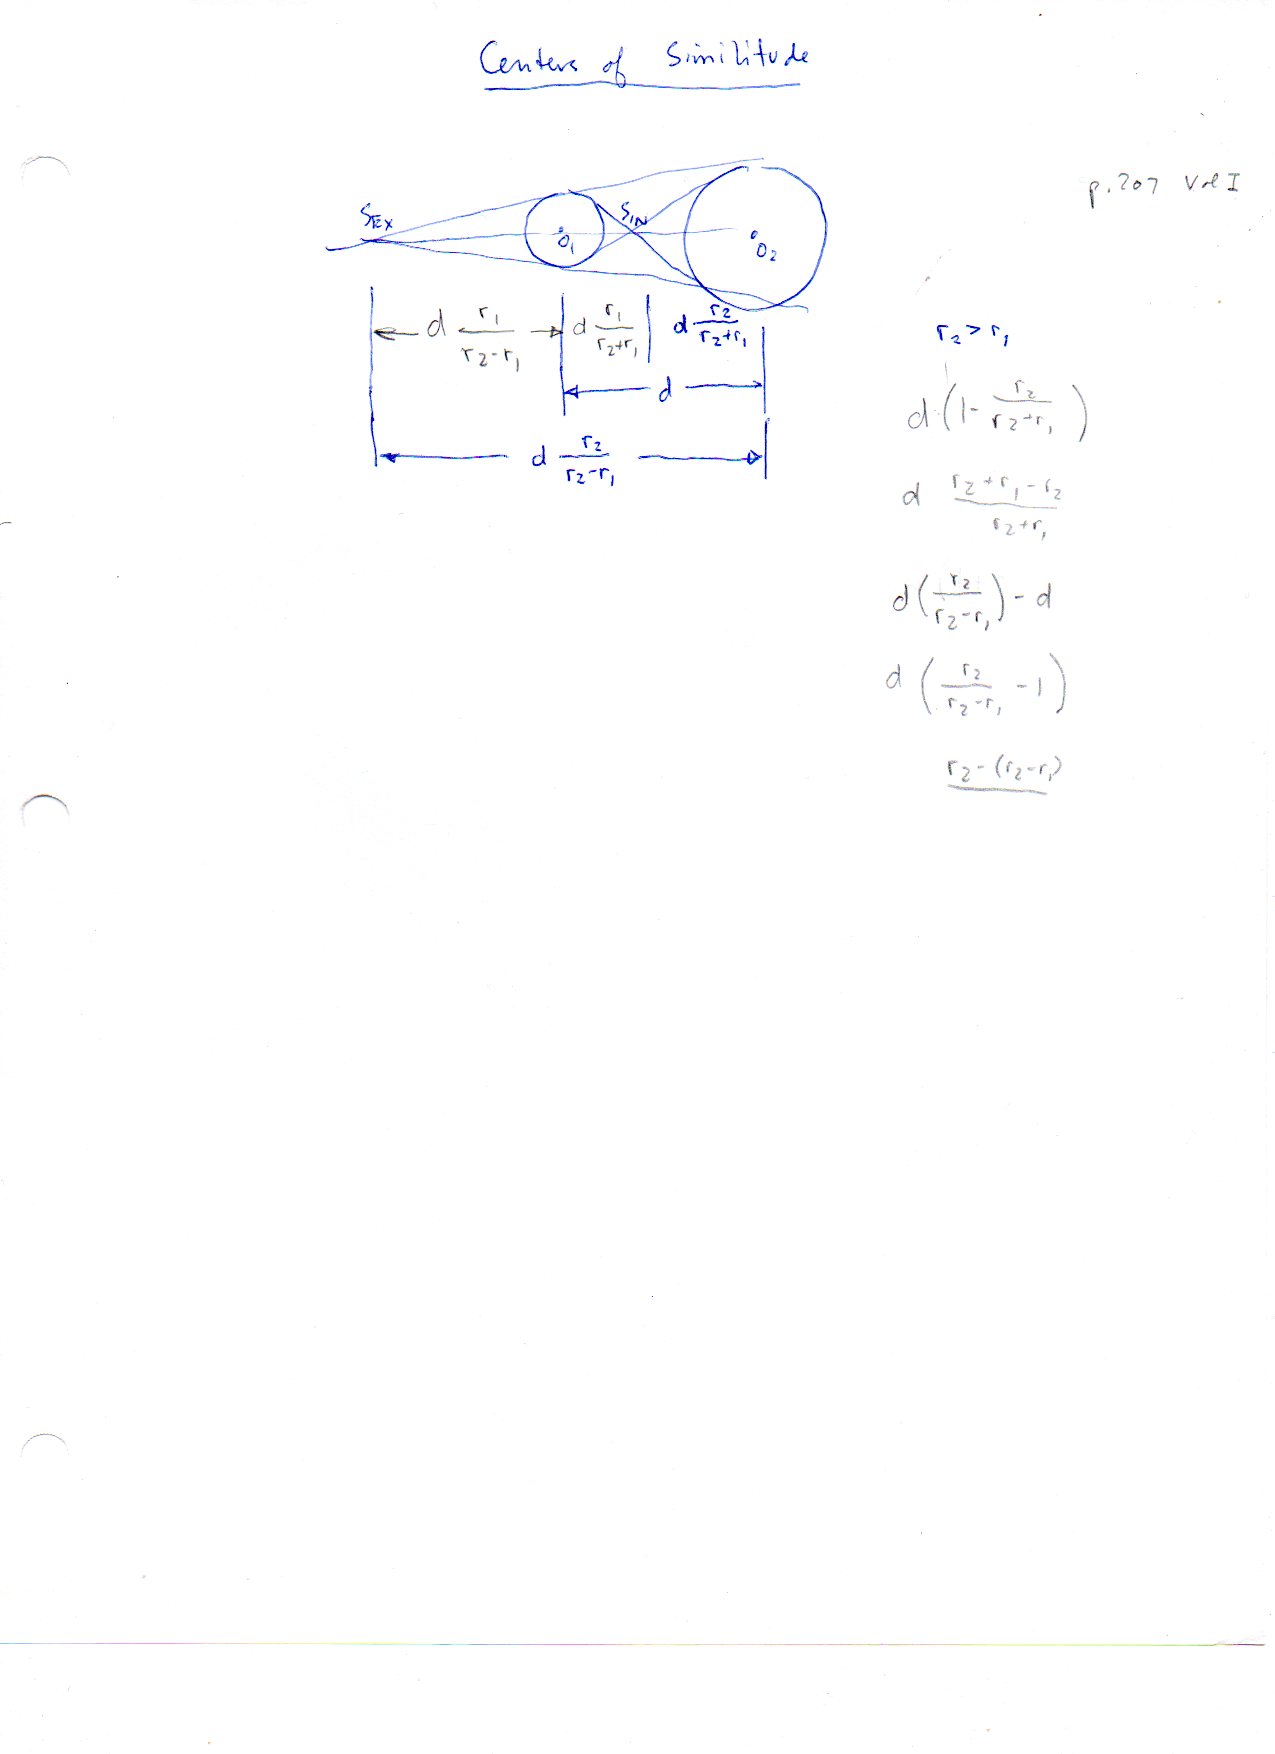 Centers of Similitude
p. 207 Vol I
S_EX O_1 S_IN O_2
d r_1/(r_2-r_1) d r_1/(r_2+r_1) d r_2/(r_2+r_1)
d
d r_2/(r_2-r_1)
r_2 > r_1
d (1 - r_2/(r_2+r_1))
d (r_2+r_1-r_2)/(r_2+r_1)
d (r_2/(r_2-r_1)) - d
d (r_2/(r_2-r_1) - 1)
r_2-(r_2-r_1)